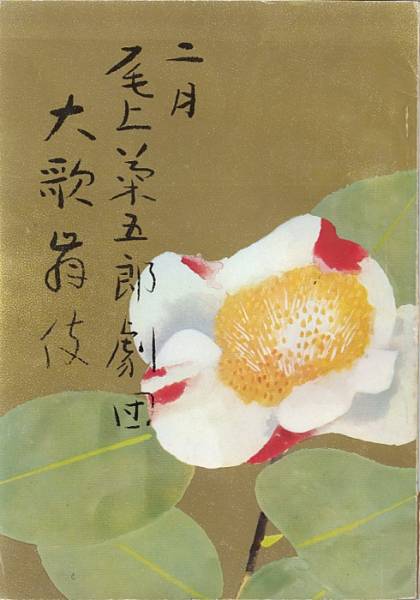 二月
尾上菊五郎劇団
大歌舞伎